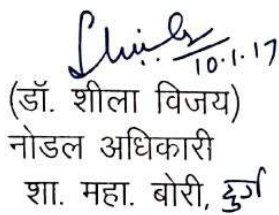 10.1.17
(डॉ. शीला विजय)
नोडल अधिकारी
शा. महा. बोरी, दुर्ग